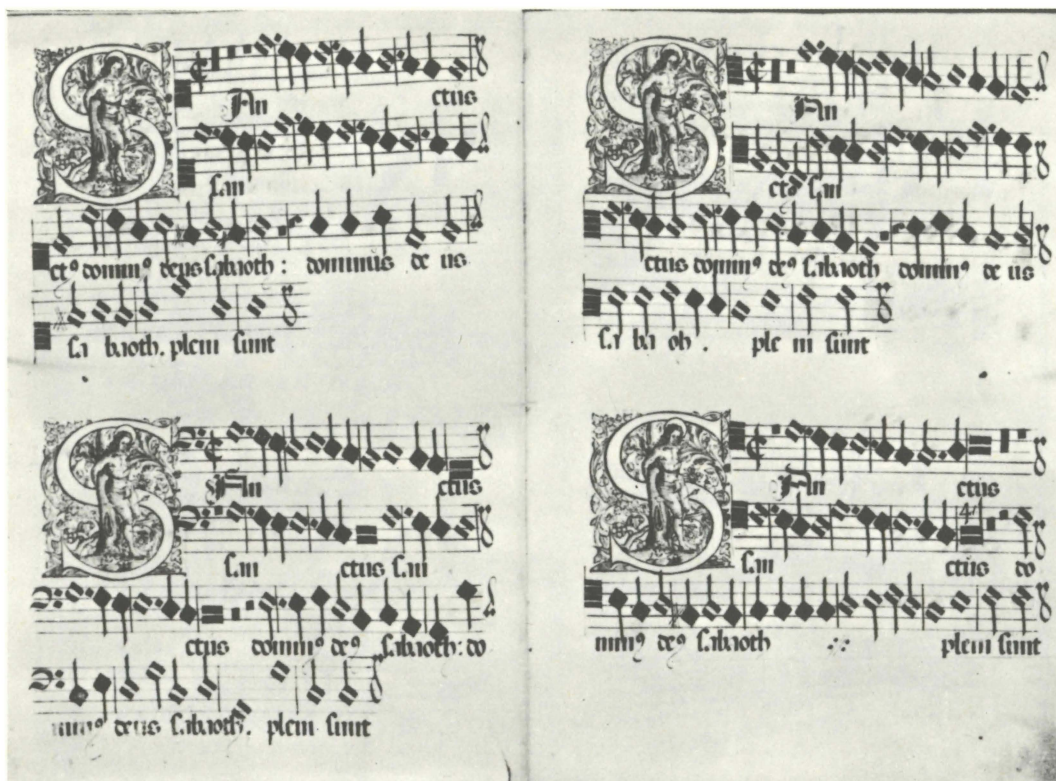 San ctus
san
ct⁹ domin⁹ deus sabaoth : dominus de us
sa baoth. pleni sunt
San
ct⁹ san
ctus domin⁹ de⁹ sabaoth domin⁹ de us
sa ba oh . ple ni sunt
San ctus
san ctus san
ctus domin⁹ de⁹ sabaoth: do
min⁹ deus sabaoth. pleni sunt
San ctus
san ctus do
min⁹ de⁹ sabaoth pleni sunt